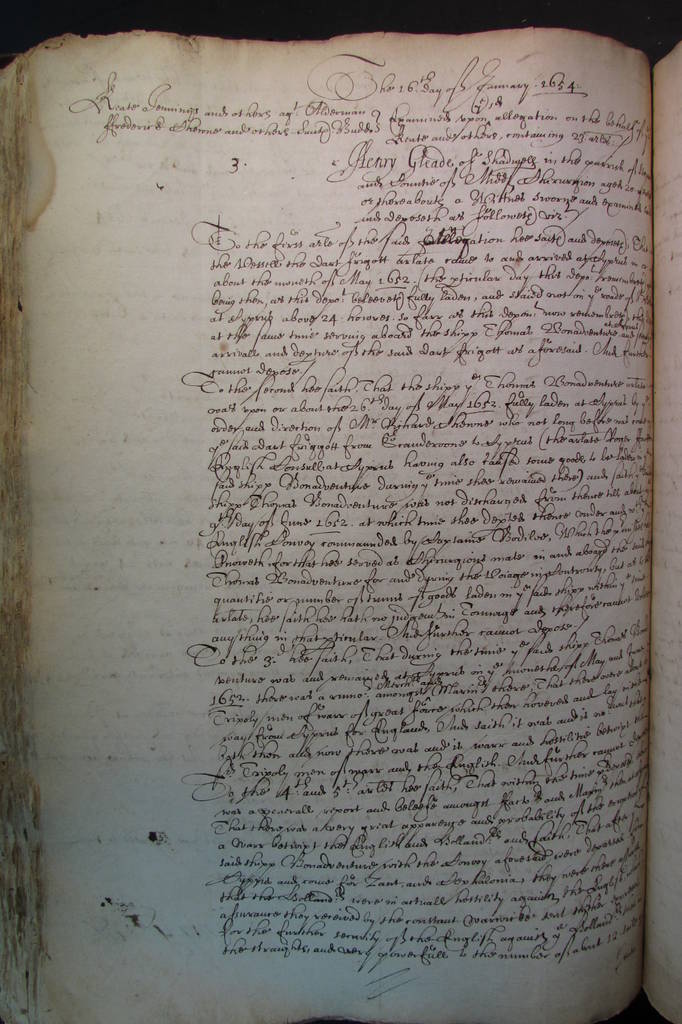 The 16th day of January 1654
Keate Jennings and others agt. Alderman
Frederick Thenne and others
Examined upon allegation on the behalf of
Keate and others, containing 25 arles.
3.
Henry Gleade of Shadwell in the parish of
and Countie of Midds Chirurgion aged 20 yeares
or thereabouts a Witnes sworne and examined
and deposeth as followeth vizt.
To the first arle of the said Allegation hee saith and deposeth That
the Vessell the dart frigott arlate came to and arrived at Cyprus in or
about the moneth of May 1652. (the pticular day this depot. remembreth
being then, as this depot. beleeveth fully laden, and staied not in ye roade of
at Cyprus above 24 houres. so farr as this depont. now remembreth
at the same time serving aboard the shipp Thomas Bonadventure
arrivall and depture of the said dart frigott as aforesaid. And further
cannot depose.
To the second hee saith, That the shipp ye Thomas Bonadventure arlate
was upon or about the 26th day of May 1652. fully laden at Cyprus by ye
order and direction of Mr. Richard Thenne who not long before was come
ye said dart friggott from Scanderoone to Cyprus (the arlate Roger
English Consull at Cyprus having also caused some goods to be laden
said shipp Bonadventure during ye time shee remained there) and saith
shipp Thomas Bonadventure was not discharged from thence till about
9th day of June 1652. at which time shee depted thence under
English Convoy commaunded by Captaine Bodiloe, Which hee
knoweth for that hee served as Chirurgions mate in and aboard the said
Thomas Bonadventure for and during the Voiage in Controversy, but as to the
quantitie or number of tunns of goods laden in ye said shipp within ye time
arlate, hee saith hee hath no judgemt. in Tonnage and therefore cannot depose
any thing in that pticular. And further cannot depose.
To the 3d. hee saith, That during the time ye said shipp Thomas Bona
venture was and remained at Cyprus in ye moneths of May and June
1652. there was a rumor amongst Mercht. and Marinrs there, That there were
Tripoly men of warr of great force which then hovered and lay in the
way from Cyprus for England, And saith it was and is
both then and now there was and is warr and hostilitie betwixt the
sd Tripoly men of warr and the English. And further cannot depose.
To the 4th. and 5th. arles hee saith, That within the time
was a generall report and beleefe amongst ffactors and Marinrs then at
That there was a very great apparence and probability of the
a warr betwixt the English and Hollandrs. and saith, That after the
said shipp Bonadventure with the Convoy aforesaid were departed from
Cyprus and come for Zant and Cephalonia, they were there
that the Hollandrs were in actuall hostility against the English
assurance they received by the constant Warwicke sent thither
for the further security of the English against ye Hollandrs
the straights and very powerfull to the number of about 12